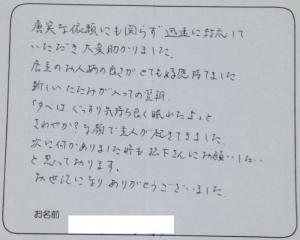 唐突な依頼にも関らず迅速に対応して
いただき大変助かりました。
店主のお人柄の良さがとても好感持てました
新しいたたみが入っての翌朝、
「夕べはぐっすり気持ち良く眠れたよ」と
さわやか?な顔で主人が起きてきました。
次に何かありました時も松下さんにお願いしたい
と思っております。
お世話になりありがとうございました。
お名前